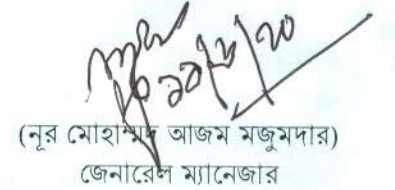 (নূর মোহাম্মদ আজম মজুমদার)
জেনারেল ম্যানেজার